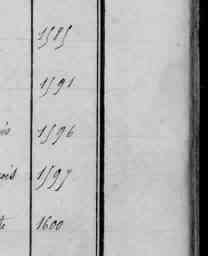 1585
1591
1596
ois 1597
1600